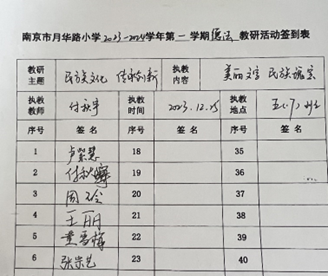 南京市月华路小学2023-2024学年第一学期德法教研活动签到表
教研主题 民族文化 传承创新 执教内容 美丽文字 民族瑰宝
执教教师 付秋平 执教时间 2023.12.15 执教地点 五(7)班
序号 签名 序号 签名 序号 签名
1 18 35
2 19 36
3 20 37
4 王丽 21 38
5 22 39
6 23 40